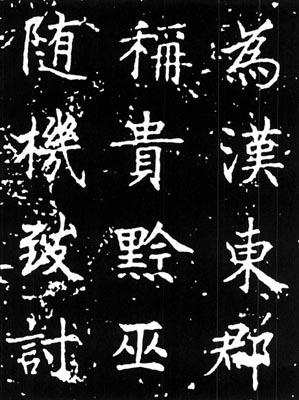 為漢東郡
稱貴黔巫
随機致討